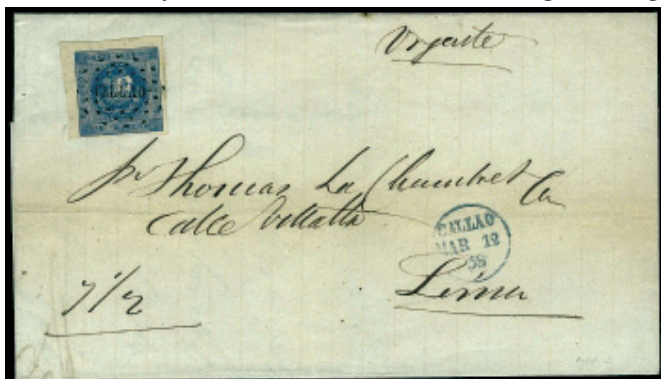 Urgente
CALLAO
Sr Thomas La Chambre & Co
Calle Villalta
CALLAO
MAR 12
58
7 1/2
Lima